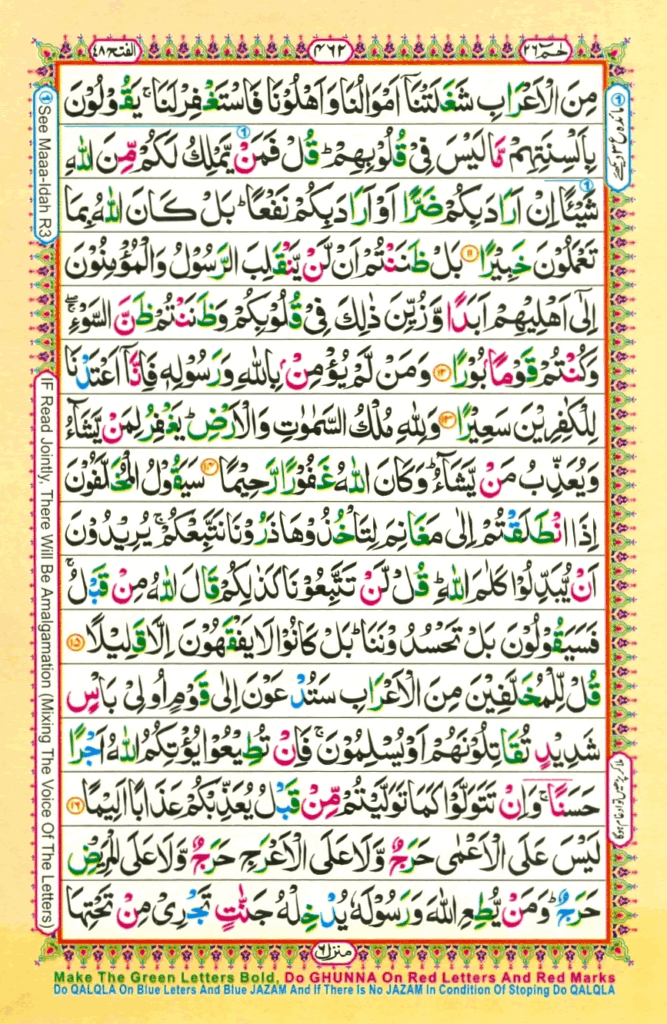 الفتح ٤٨
٤٦٢
حٰمٓ ٢٦
مِنَ الْاَعْرَابِ شَغَلَتْنَاۤ اَمْوَالُنَا وَاَهْلُوْنَا فَاسْتَغْفِرْ لَنَا ۚ يَقُوْلُوْنَ
بِاَلْسِنَتِهِمْ مَّا لَيْسَ فِيْ قُلُوْبِهِمْ ؕ قُلْ فَمَنْ يَّمْلِكُ لَكُمْ مِّنَ اللّٰهِ
شَيْـًٔا اِنْ اَرَادَ بِكُمْ ضَرًّا اَوْ اَرَادَ بِكُمْ نَفْعًا ؕ بَلْ كَانَ اللّٰهُ بِمَا
تَعْمَلُوْنَ خَبِيْرًا ﴿۱۱﴾ بَلْ ظَنَنْتُمْ اَنْ لَّنْ يَّنْقَلِبَ الرَّسُوْلُ وَالْمُؤْمِنُوْنَ
اِلٰۤى اَهْلِيْهِمْ اَبَدًا وَّزُيِّنَ ذٰلِكَ فِيْ قُلُوْبِكُمْ وَظَنَنْتُمْ ظَنَّ السَّوْءِ ۖۚ
وَكُنْتُمْ قَوْمًۢا بُوْرًا ﴿۱۲﴾ وَمَنْ لَّمْ يُؤْمِنْۢ بِاللّٰهِ وَرَسُوْلِهٖ فَاِنَّاۤ اَعْتَدْنَا
لِلْكٰفِرِيْنَ سَعِيْرًا ﴿۱۳﴾ وَلِلّٰهِ مُلْكُ السَّمٰوٰتِ وَالْاَرْضِ ؕ يَغْفِرُ لِمَنْ يَّشَآءُ
وَيُعَذِّبُ مَنْ يَّشَآءُ ؕ وَكَانَ اللّٰهُ غَفُوْرًا رَّحِيْمًا ﴿۱۴﴾ سَيَقُوْلُ الْمُخَلَّفُوْنَ
اِذَا انْطَلَقْتُمْ اِلٰى مَغَانِمَ لِتَاْخُذُوْهَا ذَرُوْنَا نَتَّبِعْكُمْ ۚ يُرِيْدُوْنَ
اَنْ يُّبَدِّلُوْا كَلٰمَ اللّٰهِ ؕ قُلْ لَّنْ تَتَّبِعُوْنَا كَذٰلِكُمْ قَالَ اللّٰهُ مِنْ قَبْلُ ۚ
فَسَيَقُوْلُوْنَ بَلْ تَحْسُدُوْنَنَا ؕ بَلْ كَانُوْا لَا يَفْقَهُوْنَ اِلَّا قَلِيْلًا ﴿۱۵﴾
قُلْ لِّلْمُخَلَّفِيْنَ مِنَ الْاَعْرَابِ سَتُدْعَوْنَ اِلٰى قَوْمٍ اُولِيْ بَاْسٍ
شَدِيْدٍ تُقَاتِلُوْنَهُمْ اَوْ يُسْلِمُوْنَ ۚ فَاِنْ تُطِيْعُوْا يُؤْتِكُمُ اللّٰهُ اَجْرًا
حَسَنًا ۚ وَاِنْ تَتَوَلَّوْا كَمَا تَوَلَّيْتُمْ مِّنْ قَبْلُ يُعَذِّبْكُمْ عَذَابًا اَلِيْمًا ﴿۱۶﴾
لَيْسَ عَلَى الْاَعْمٰى حَرَجٌ وَّلَا عَلَى الْاَعْرَجِ حَرَجٌ وَّلَا عَلَى الْمَرِيْضِ
حَرَجٌ ؕ وَمَنْ يُّطِعِ اللّٰهَ وَرَسُوْلَهٗ يُدْخِلْهُ جَنّٰتٍ تَجْرِيْ مِنْ تَحْتِهَا
منزل ٦
① See Maaa-Idah R3
IF Read Jointly, There Will Be Amalgamation (Mixing The Voice Of The Letters)
Make The Green Letters Bold, Do GHUNNA On Red Letters And Red Marks
Do QALQLA On Blue Leters And Blue JAZAM And If There Is No JAZAM In Condition Of Stoping Do QALQLA